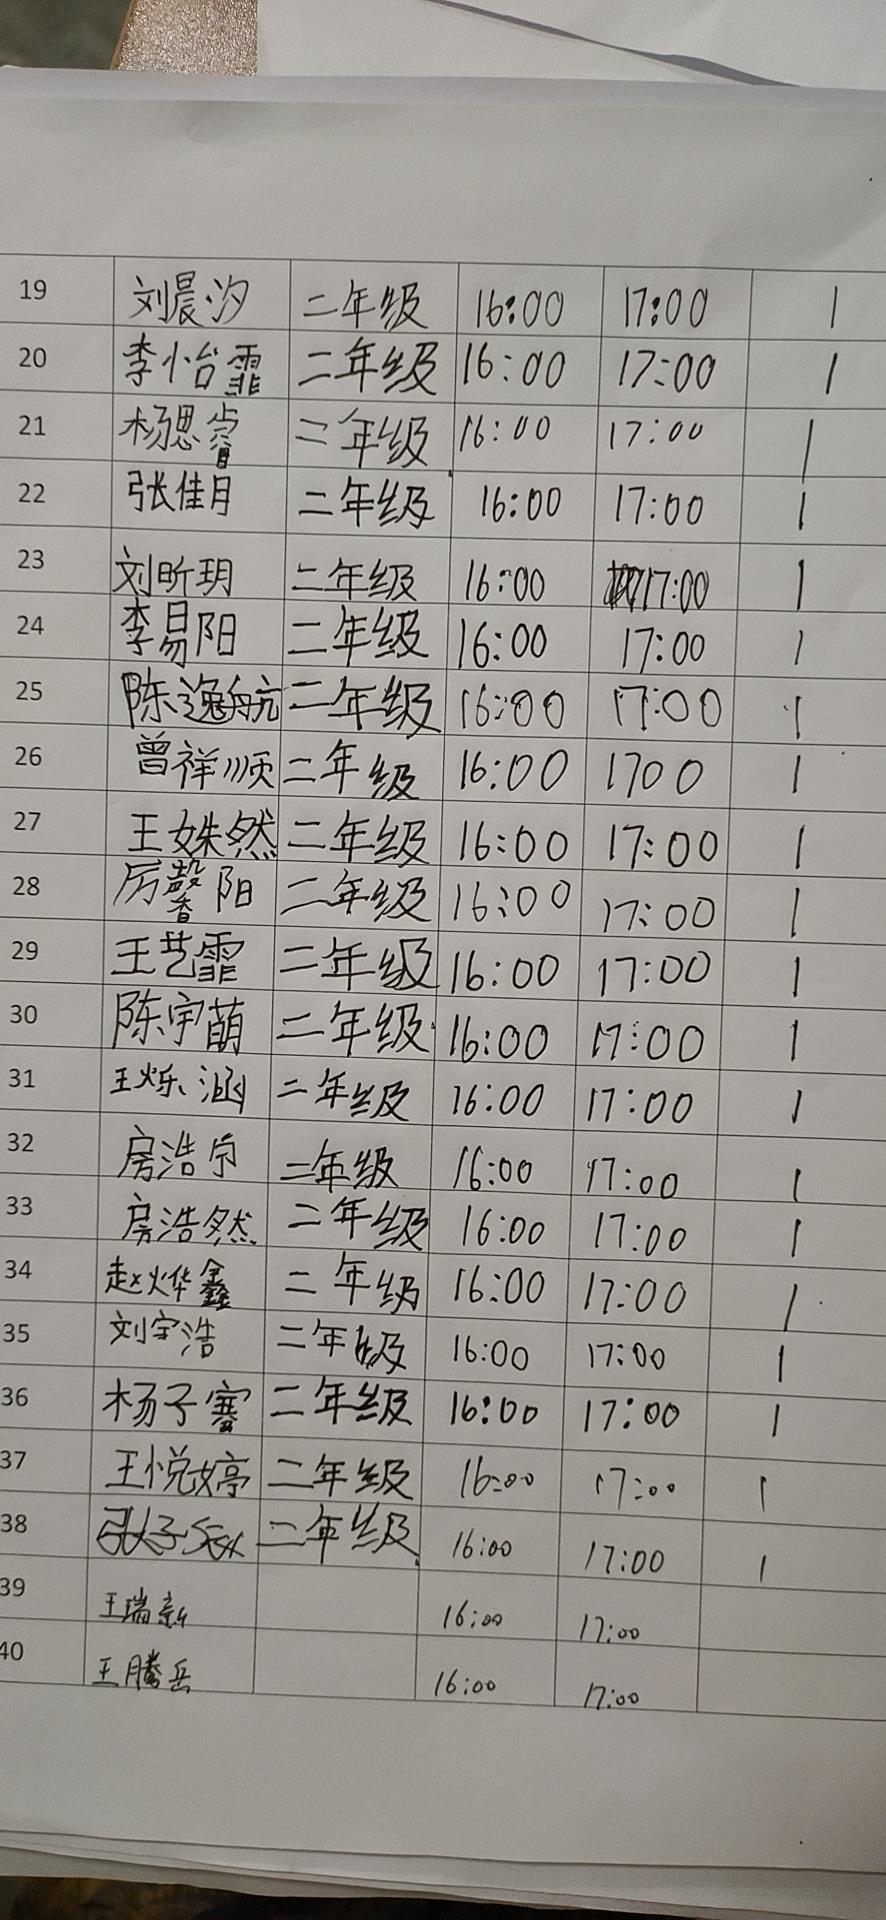 19 刘晨汐 二年级 16:00 17:00 1
20 李怡霏 二年级 16:00 17:00 1
21 杨思睿 二年级 16:00 17:00 1
22 张佳月 二年级 16:00 17:00 1
23 刘昕玥 二年级 16:00 17:00 1
24 李易阳 二年级 16:00 17:00 1
25 陈逸航 二年级 16:00 17:00 1
26 曾祥顺 二年级 16:00 1700 1
27 王姝然 二年级 16:00 17:00 1
28 厉馨阳 二年级 16:00 17:00 1
29 王艺霏 二年级 16:00 17:00 1
30 陈宇萌 二年级 16:00 17:00 1
31 王烁涵 二年级 16:00 17:00 1
32 房浩宇 二年级 16:00 17:00 1
33 房浩然 二年级 16:00 17:00 1
34 赵烨鑫 二年级 16:00 17:00 1
35 刘宇浩 二年级 16:00 17:00 1
36 杨子骞 二年级 16:00 17:00 1
37 王悦婷 二年级 16:00 17:00 1
38 二年级 16:00 17:00 1
39 王瑞新 16:00 17:00
40 王腾岳 16:00 17:00